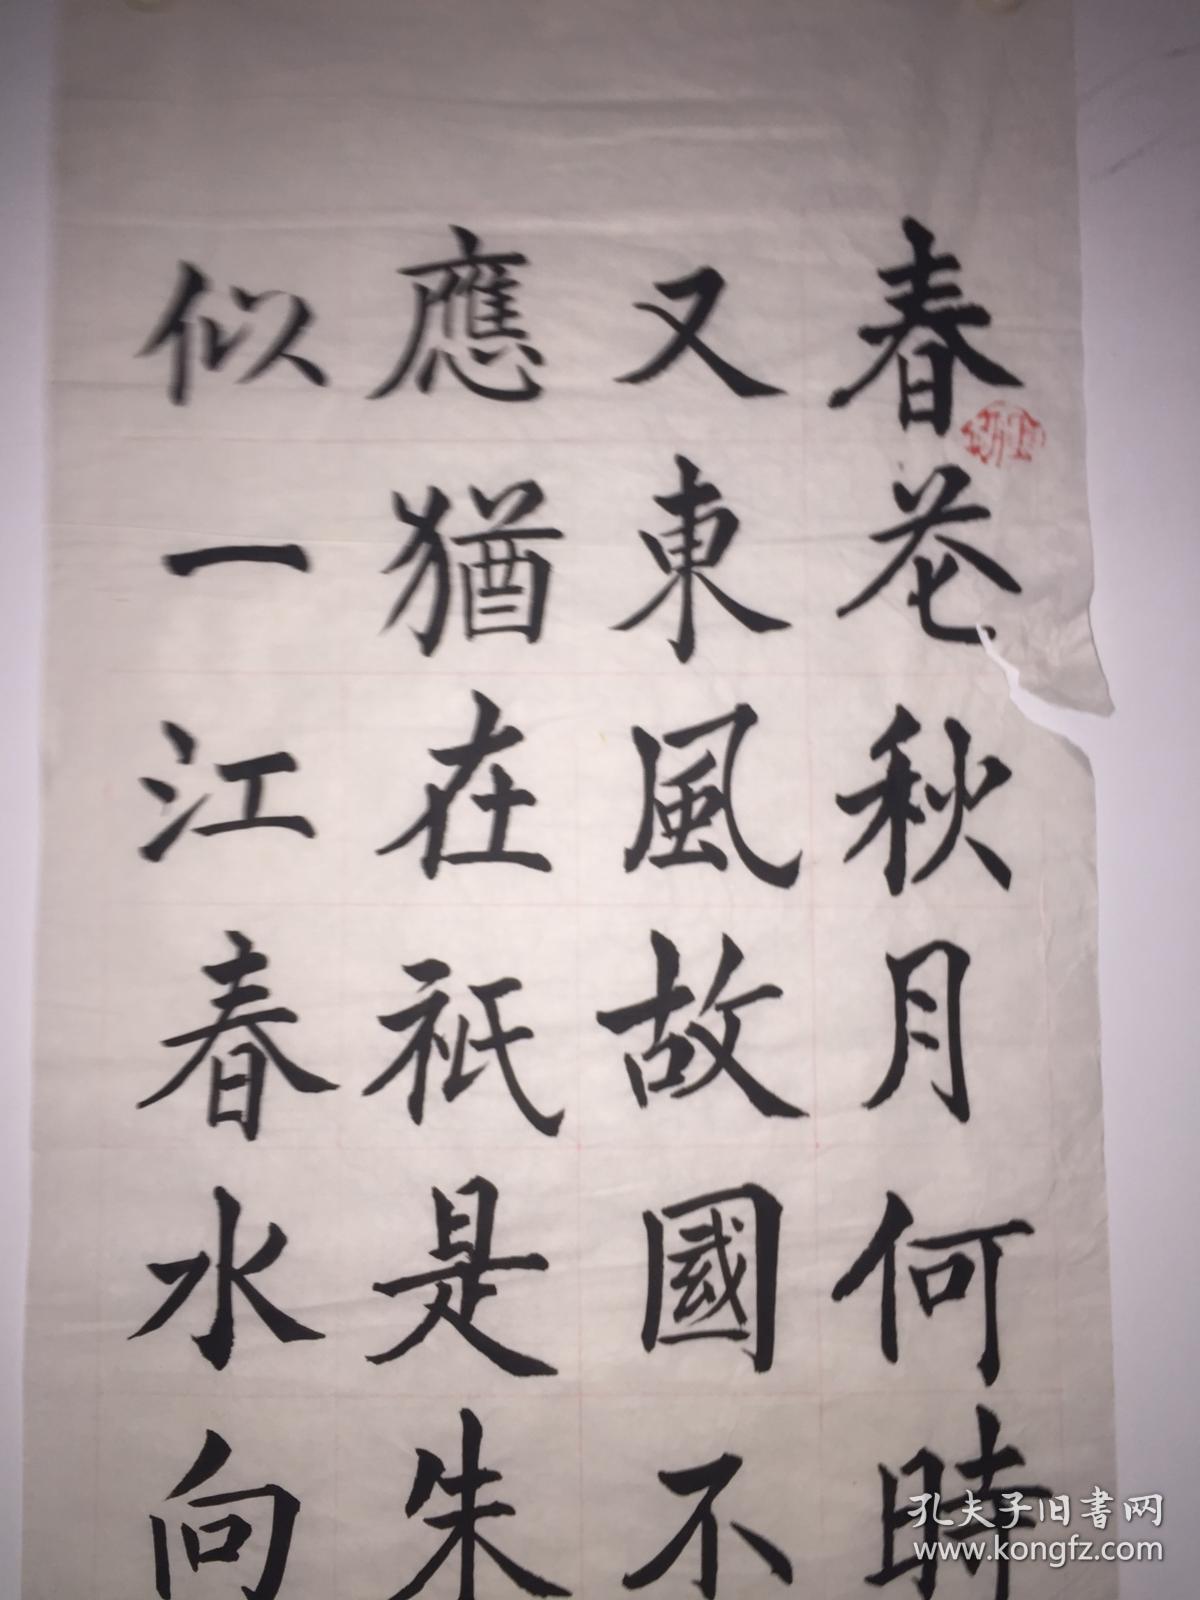 春花秋月何時
又東風故國不
應猶在祇是朱
似一江春水向
孔夫子旧書网
www.kongfz.com